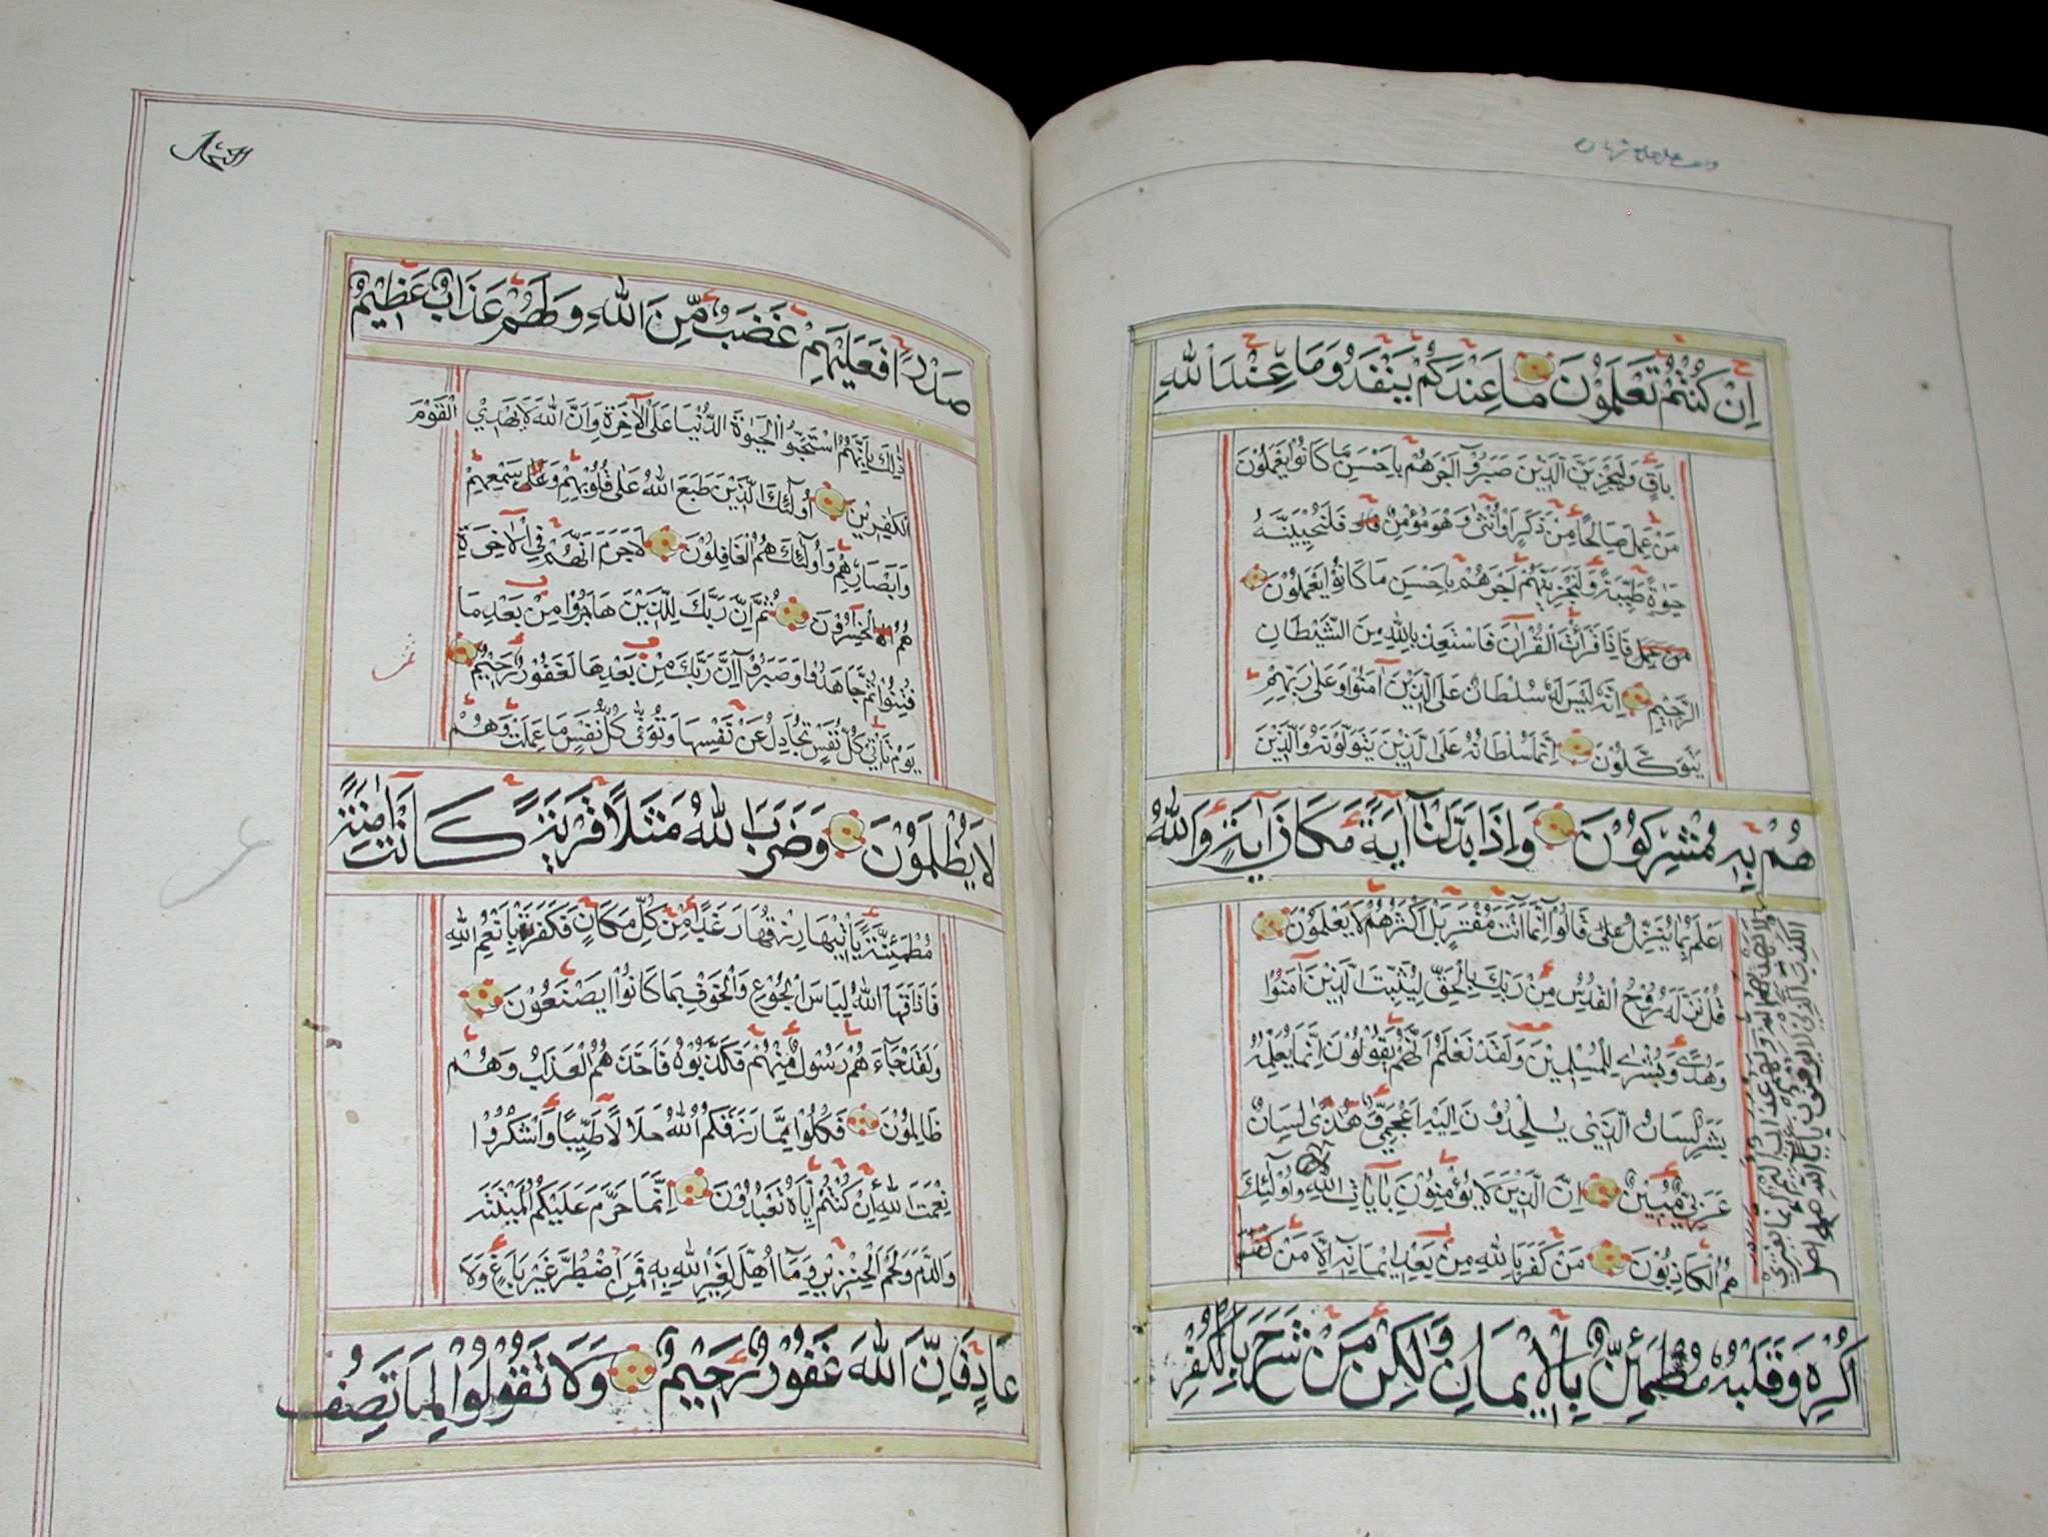 اِنْ كُنْتُمْ تَعْلَمُوْنَ مَاعِنْدَكُمْ يَنْفَدُ وَمَاعِنْدَاللهِ
بَاقٍ وَلَيَجْزِيَنَّ الَّذِيْنَ صَبَرُوْآ اَجْرَهُمْ بِاَحْسَنِ مَا كَانُوْا يَعْمَلُوْنَ
مَنْ عَمِلَ صَالِحًا مِّنْ ذَكَرٍ اَوْ اُنْثٰى وَهُوَ مُؤْمِنٌ فَلَنُحْيِيَنَّهٗ
حَيٰوةً طَيِّبَةً وَلَنَجْزِيَنَّهُمْ اَجْرَهُمْ بِاَحْسَنِ مَا كَانُوْا يَعْمَلُوْنَ
مَنْ عَمِلَ فَاِذَا قَرَاْتَ الْقُرْاٰنَ فَاسْتَعِذْ بِاللهِ مِنَ الشَّيْطَانِ
الرَّجِيْمِ اِنَّهٗ لَيْسَ لَهٗ سُلْطَانٌ عَلَى الَّذِيْنَ اٰمَنُوْا وَعَلٰى رَبِّهِمْ
يَتَوَكَّلُوْنَ اِنَّمَا سُلْطَانُهٗ عَلَى الَّذِيْنَ يَتَوَلَّوْنَهٗ وَالَّذِيْنَ
هُمْ بِهٖ مُشْرِكُوْنَ وَاِذَا بَدَّلْنَآ اٰيَةً مَّكَانَ اٰيَةٍ وَاللهُ
اَعْلَمُ بِمَا يُنَزِّلُ قَالُوْٓا اِنَّمَآ اَنْتَ مُفْتَرٍ بَلْ اَكْثَرُهُمْ لَا يَعْلَمُوْنَ
قُلْ نَزَّلَهٗ رُوْحُ الْقُدُسِ مِنْ رَّبِّكَ بِالْحَقِّ لِيُثَبِّتَ الَّذِيْنَ اٰمَنُوْا
وَهُدًى وَّبُشْرٰى لِلْمُسْلِمِيْنَ وَلَقَدْ نَعْلَمُ اَنَّهُمْ يَقُوْلُوْنَ اِنَّمَا يُعَلِّمُهٗ
بَشَرٌ لِسَانُ الَّذِيْ يُلْحِدُوْنَ اِلَيْهِ اَعْجَمِيٌّ وَّهٰذَا لِسَانٌ
عَرَبِيٌّ مُّبِيْنٌ اِنَّ الَّذِيْنَ لَا يُؤْمِنُوْنَ بِاٰيَاتِ اللهِ وَاُولٰٓئِكَ
هُمُ الْكَاذِبُوْنَ مَنْ كَفَرَ بِاللهِ مِنْ بَعْدِ اِيْمَانِهٖ اِلَّا مَنْ
اُكْرِهَ وَقَلْبُهٗ مُطْمَئِنٌّ بِالْاِيْمَانِ وَلٰكِنْ مَنْ شَرَحَ بِالْكُفْرِ
لَا يَهْدِيْهِمُ اللهُ وَلَهُمْ عَذَابٌ اَلِيْمٌ اِنَّمَا يَفْتَرِي
الْكَذِبَ الَّذِيْنَ لَا يُؤْمِنُوْنَ بِاٰيَاتِ اللهِ
صَدْرًا فَعَلَيْهِمْ غَضَبٌ مِّنَ اللهِ وَلَهُمْ عَذَابٌ عَظِيْمٌ
ذٰلِكَ بِاَنَّهُمُ اسْتَحَبُّوا الْحَيٰوةَ الدُّنْيَا عَلَى الْاٰخِرَةِ وَاَنَّ اللهَ لَا يَهْدِي الْقَوْمَ
الْكٰفِرِيْنَ اُولٰٓئِكَ الَّذِيْنَ طَبَعَ اللهُ عَلٰى قُلُوْبِهِمْ وَعَلٰى سَمْعِهِمْ
وَاَبْصَارِهِمْ وَاُولٰٓئِكَ هُمُ الْغَافِلُوْنَ لَا جَرَمَ اَنَّهُمْ فِي الْاٰخِرَةِ
هُمُ الْخٰسِرُوْنَ ثُمَّ اِنَّ رَبَّكَ لِلَّذِيْنَ هَاجَرُوْا مِنْ بَعْدِ مَا
فُتِنُوْا ثُمَّ جَاهَدُوْا وَصَبَرُوْٓا اِنَّ رَبَّكَ مِنْ بَعْدِهَا لَغَفُوْرٌ رَّحِيْمٌ
يَوْمَ تَاْتِيْ كُلُّ نَفْسٍ تُجَادِلُ عَنْ نَّفْسِهَا وَتُوَفّٰى كُلُّ نَفْسٍ مَّا عَمِلَتْ وَهُمْ
لَا يُظْلَمُوْنَ وَضَرَبَ اللهُ مَثَلًا قَرْيَةً كَانَتْ اٰمِنَةً
مُّطْمَئِنَّةً يَّاْتِيْهَا رِزْقُهَا رَغَدًا مِّنْ كُلِّ مَكَانٍ فَكَفَرَتْ بِاَنْعُمِ اللهِ
فَاَذَاقَهَا اللهُ لِبَاسَ الْجُوْعِ وَالْخَوْفِ بِمَا كَانُوْا يَصْنَعُوْنَ
وَلَقَدْ جَآءَهُمْ رَسُوْلٌ مِّنْهُمْ فَكَذَّبُوْهُ فَاَخَذَهُمُ الْعَذَابُ وَهُمْ
ظَالِمُوْنَ فَكُلُوْا مِمَّا رَزَقَكُمُ اللهُ حَلَالًا طَيِّبًا وَّاشْكُرُوْا
نِعْمَتَ اللهِ اِنْ كُنْتُمْ اِيَّاهُ تَعْبُدُوْنَ اِنَّمَا حَرَّمَ عَلَيْكُمُ الْمَيْتَةَ
وَالدَّمَ وَلَحْمَ الْخِنْزِيْرِ وَمَآ اُهِلَّ لِغَيْرِ اللهِ بِهٖ فَمَنِ اضْطُرَّ غَيْرَ بَاغٍ وَّلَا
عَادٍ فَاِنَّ اللهَ غَفُوْرٌ رَّحِيْمٌ وَلَا تَقُوْلُوْا لِمَا تَصِفُ